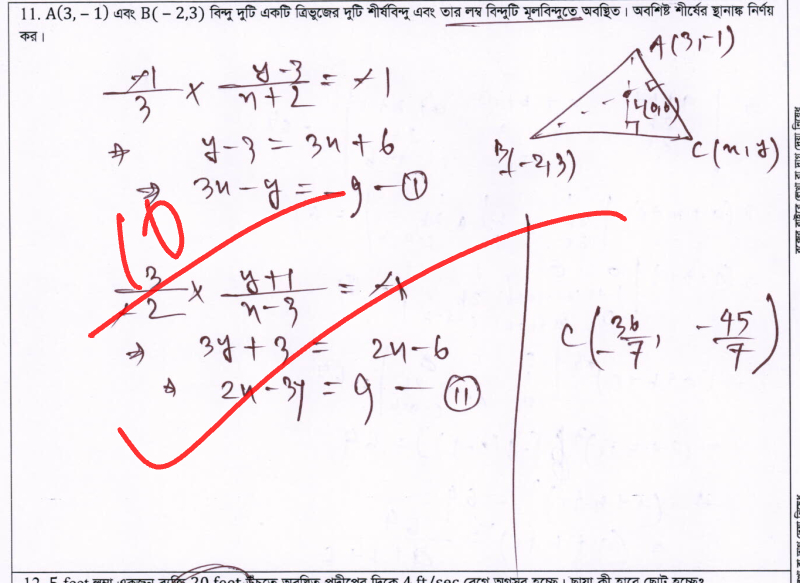 11. A(3, − 1) এবং B( − 2,3) বিন্দু দুটি একটি ত্রিভুজের দুটি শীর্ষবিন্দু এবং তার লম্ব বিন্দুটি মূলবিন্দুতে অবস্থিত। অবশিষ্ট শীর্ষের স্থানাঙ্ক নির্ণয়
কর।
A(3,-1)
H(0,0)
B(-2,3)
C(x,y)
-1/3 × y-3/x+2 = -1
⇒ y-3 = 3x+6
⇒ 3x-y = -9 — (I)
10
3/-2 × y+1/x-3 = -1
⇒ 3y+3 = 2x-6
⇒ 2x-3y = 9 — (II)
C(-36/7, -45/7)
12. 5 feet লম্বা একজন ব্যক্তি 20 foot উঁচুতে অবস্থিত প্রদীপের দিকে 4 ft/sec বেগে অগ্রসর হচ্ছে। ছায়া কী হারে ছোট হচ্ছে?